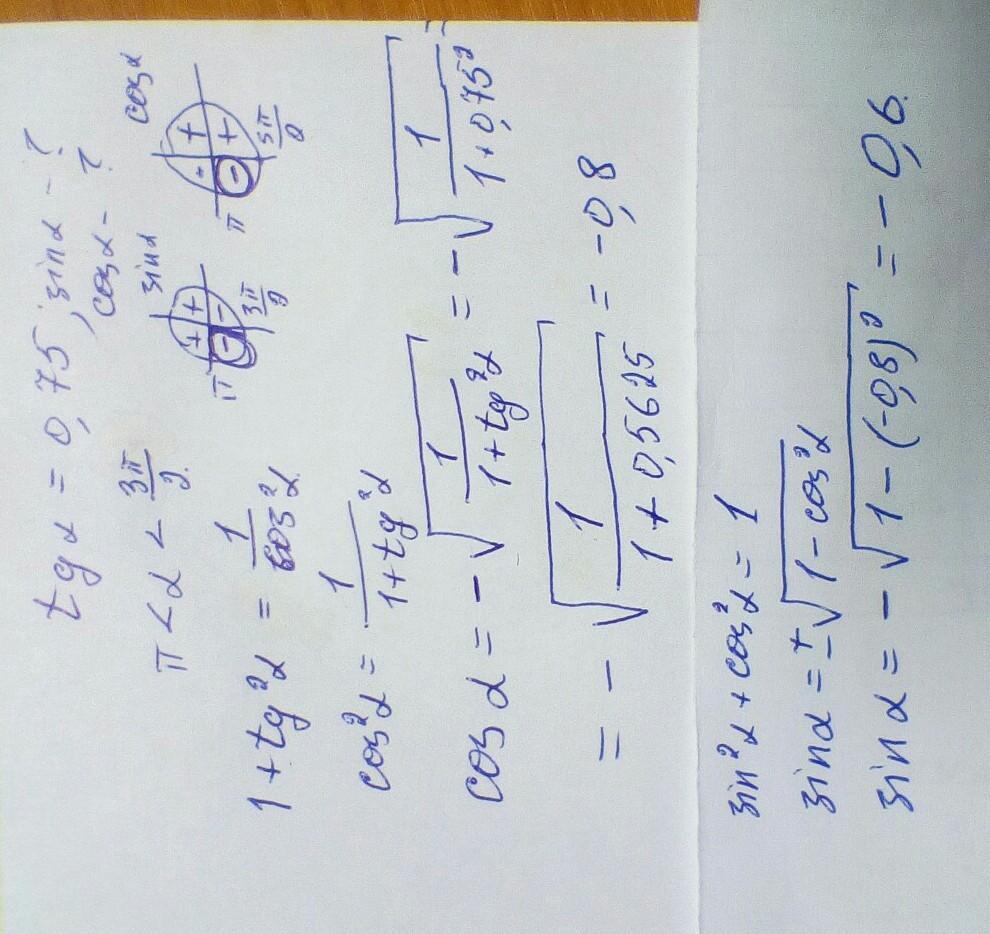 tg α = 0,75, sin α - ?
cos α - ?
π < α < 3π/2
sin α
+ +
- -
π
3π/2
cos α
- +
- +
π
3π/2
1 + tg²α = 1/cos²α
cos²α = 1/(1 + tg²α)
cos α = -√(1/(1 + tg²α)) = -√(1/(1 + 0,75²)) =
= -√(1/(1 + 0,5625)) = -0,8
sin²α + cos²α = 1
sin α = ±√(1 - cos²α)
sin α = -√(1 - (-0,8)²) = -0,6.